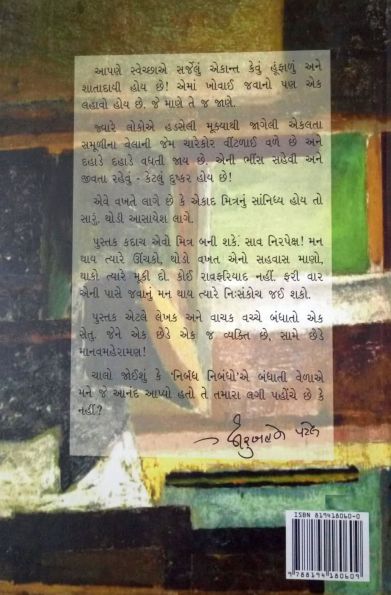 આપણે સ્વેચ્છાએ સર્જેલું એકાન્ત કેવું હૂંફાળું અને
શાતાદાયી હોય છે! એમાં ખોવાઈ જવાનો પણ એક
લહાવો હોય છે. જે માણે તે જ જાણે.
જ્યારે લોકોએ હડસેલી મૂક્યાથી જાગેલી એકલતા
સમૂળીના વેલાની જેમ ચારેકોર વીંટળાઈ વળે છે અને
દહાડે દહાડે વધતી જાય છે. એની ભીંસ સહેવી અને
જીવતા રહેવું - કેટલું દુષ્કર હોય છે!
એવે વખતે લાગે છે કે એકાદ મિત્રનું સાંનિધ્ય હોય તો
સારું. થોડી આસાયેશ લાગે.
પુસ્તક કદાચ એવો મિત્ર બની શકે. સાવ નિરપેક્ષ! મન
થાય ત્યારે ઊંચકો, થોડો વખત એનો સહવાસ માણો,
થાકો ત્યારે મૂકી દો. કોઈ રાવફરિયાદ નહીં. ફરી વાર
એની પાસે જવાનું મન થાય ત્યારે નિઃસંકોચ જઈ શકો.
પુસ્તક એટલે લેખક અને વાચક વચ્ચે બંધાતો એક
સેતુ. જેને એક છેડે એક જ વ્યક્તિ છે, સામે છેડે
માનવમહેરામણ!
ચાલો જોઈશું કે 'નિબંધ નિબંધો'એ બંધાતી વેળાએ
મને જે આનંદ આપ્યો હતો તે તમારા લગી પહોંચે છે કે
નહીં?
પટેલ
ISBN 819418060-0
9 788194 180609